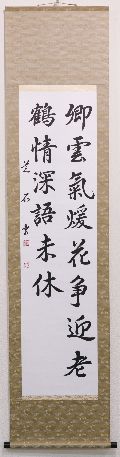 卿雲氣煖花争迎老
鶴情深語未休
芝石書